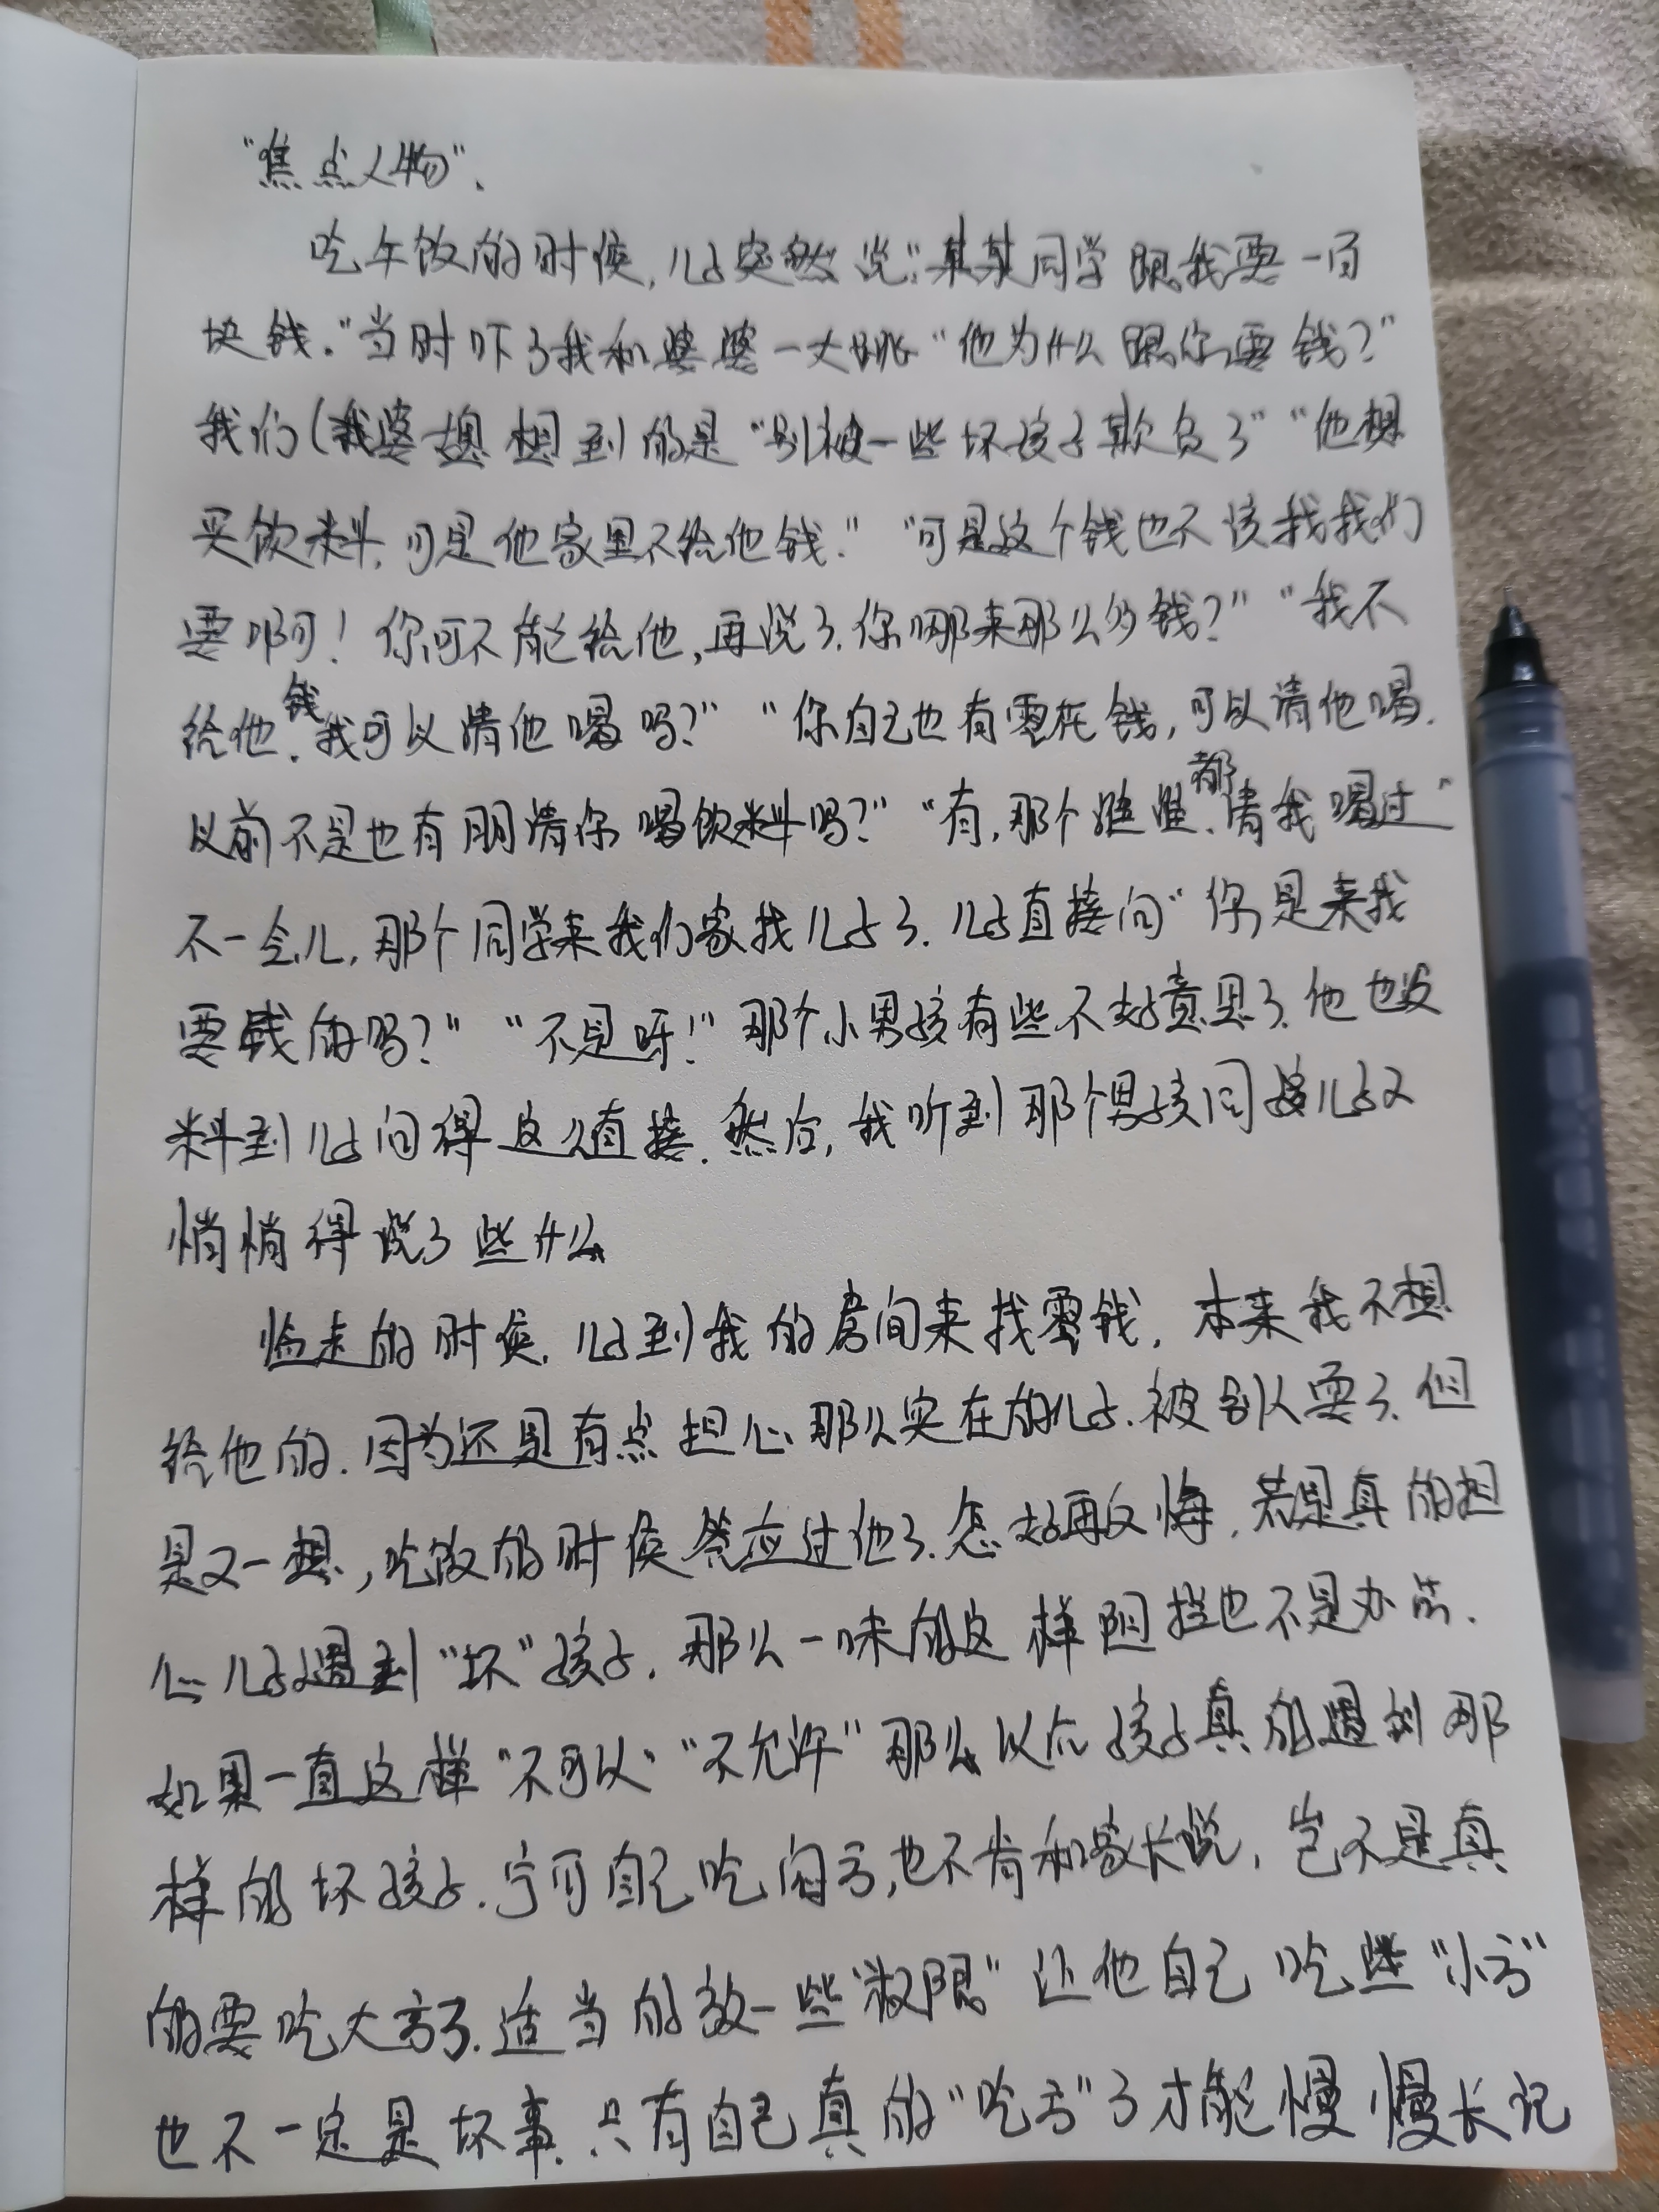 “焦点人物”.
吃午饭的时候,儿子突然说:“某某同学跟我要一百
块钱.”当时吓了我和婆婆一大跳“他为什么跟你要钱?”
我们(我婆媳想到的是“别被一些坏孩子欺负了”“他想
买饮料,可是他家里不给他钱.”“可是这个钱也不该找我们
要啊!你可不能给他,再说了.你哪来那么多钱?”“我不
给他钱.我可以请他喝吗?”“你自己也有零花钱,可以请他喝.
以前不是也有朋请你喝饮料吗?”“有,那个谁谁.都请我喝过”
不一会儿,那个同学来我们家找儿子了.儿子直接问“你是来我
要钱的吗?”“不是呀!”那个小男孩有些不好意思了.他也没
料到儿子问得这么直接.然后,我听到那个男孩同我儿子又
悄悄得说了些什么
临走的时侯,儿子到我的房间来找零钱,本来我不想
给他的.因为还是有点担心那么实在的儿子.被别人耍了.但
是又一想,吃饭的时侯答应过他了.怎好再反悔,若是真的担
心儿子遇到“坏”孩子,那么一味的这样阻拦也不是办法.
如果一直这样“不可以”“不允许”那么以后孩子真的遇到那
样的坏孩子.宁可自己吃闷亏,也不肯和家长说,岂不是真
的要吃大亏了.适当的放一些“权限”让他自己吃些“小亏”
也不一定是坏事.只有自己真的“吃亏”了才能慢慢长记